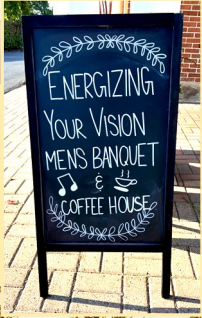 ENERGIZING
YOUR VISION
MENS BANQUET
&
COFFEE HOUSE